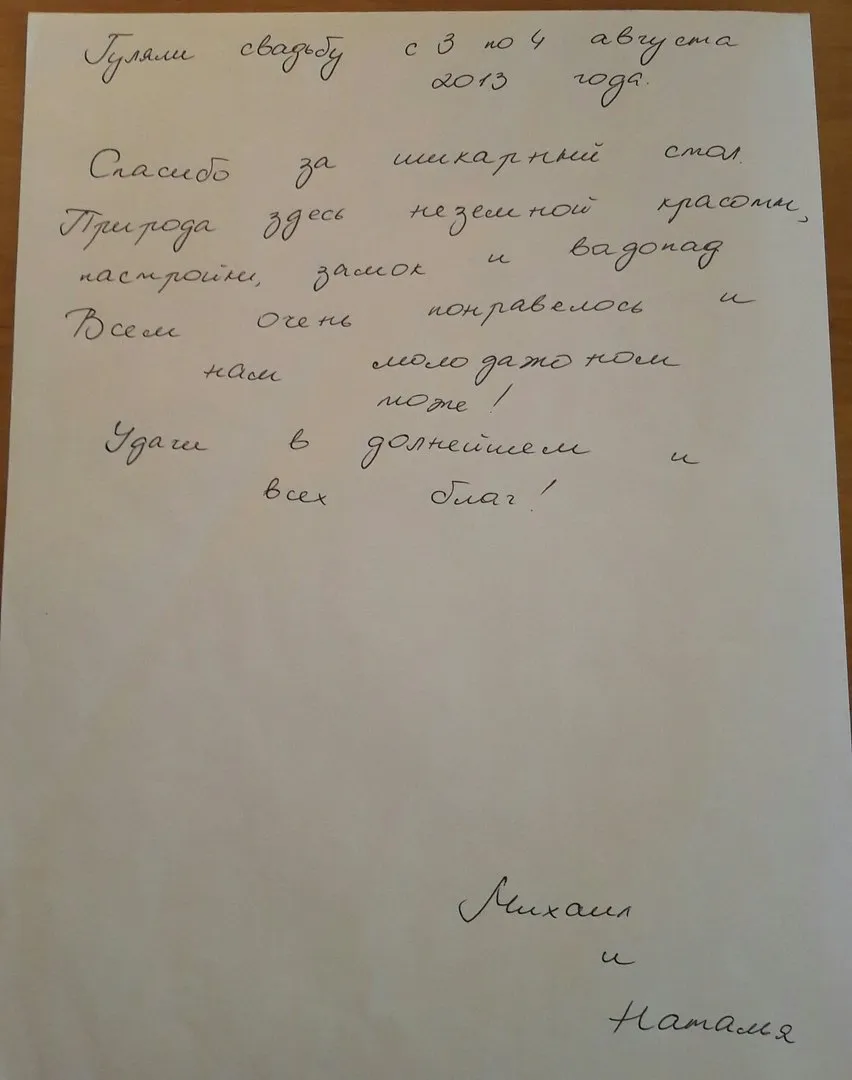 Гуляли свадьбу с 3 по 4 августа
2013 года.
Спасибо за шикарный стол.
Природа здесь неземной красоты,
пастройки, замок и вадопад
Всем очень понравелось и
нам моло дажо ном
тоже!
Удачи в долнейшем и
всех благ!
Михаил
и
Наталья